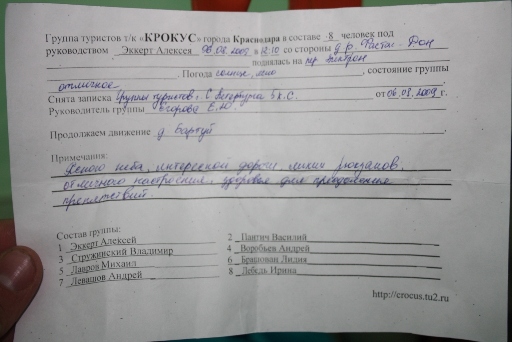 Группа туристов т/к «КРОКУС» города Краснодара в составе 8 человек под
руководством Эккерт Алексея 06.08.2009 в 12:10 со стороны д.р. Фастак-Дон
поднялась на пер.
Погода солнце, ясно, состояние группы
отличное.
Снята записка группы туристов г. С 5 к.с. от 06.08.2009 г.
Руководитель группы Егорова Е.Ю.
Продолжаем движение д.
Примечания:
Ясного неба, интересной дороги, легких рюкзаков,
отличного настроения, здоровья для преодоления
препятствий.
Состав группы:
1 Эккерт Алексей
2 Пантич Василий
3 Стружинский Владимир
4 Воробьев Андрей
5 Лавров Михаил
6 Брашован Лидия
7 Левашов Андрей
8 Лебедь Ирина
http://crocus.tu2.ru